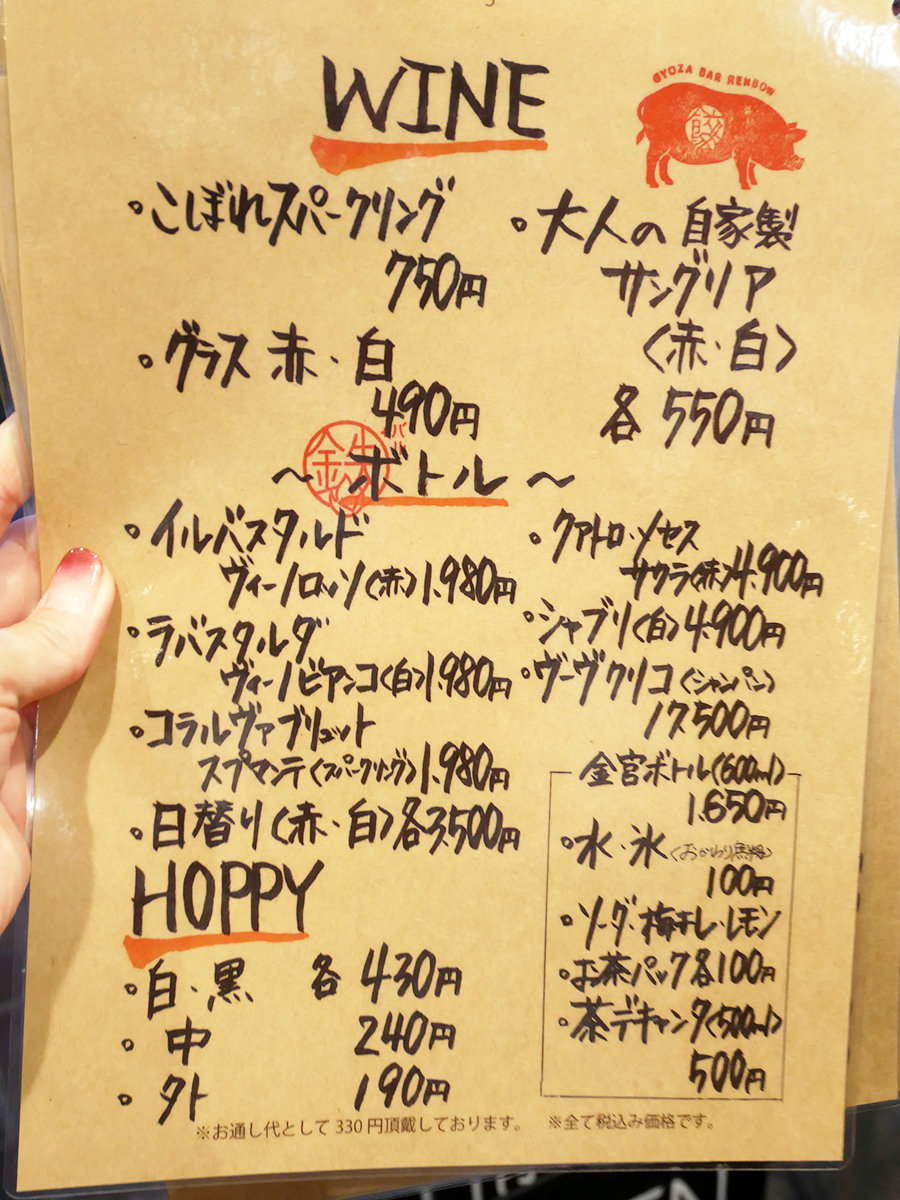 WINE
GYOZA BAR RENBOW
餃
・こぼれスパークリング
750円
・グラス 赤・白
490円
・大人の自家製
サングリア
〈赤・白〉
各 550円
〜ボトル〜
・イルバスタルド
ヴィーノロッソ〈赤〉1.980円
・ラバスタルダ
ヴィーノビアンコ〈白〉1.980円
・コラルヴァブリュット
スプマンテ〈スパークリング〉1.980円
・日替り〈赤・白〉各3,500円
・クアトロ・ソセス
サクラ〈赤〉4.900円
・シャブリ〈白〉4.900円
・ヴーヴクリコ〈シャンパン〉
17,500円
HOPPY
・白・黒 各 430円
・中 240円
・外 190円
金宮ボトル(600ml)
1.650円
・水・氷〈おかわり無料〉
100円
・ソーダ・梅干し・レモン
・お茶パック各100円
・茶デキャンタ〈500ml〉
500円
※お通し代として 330 円頂戴しております。 ※全て税込み価格です。